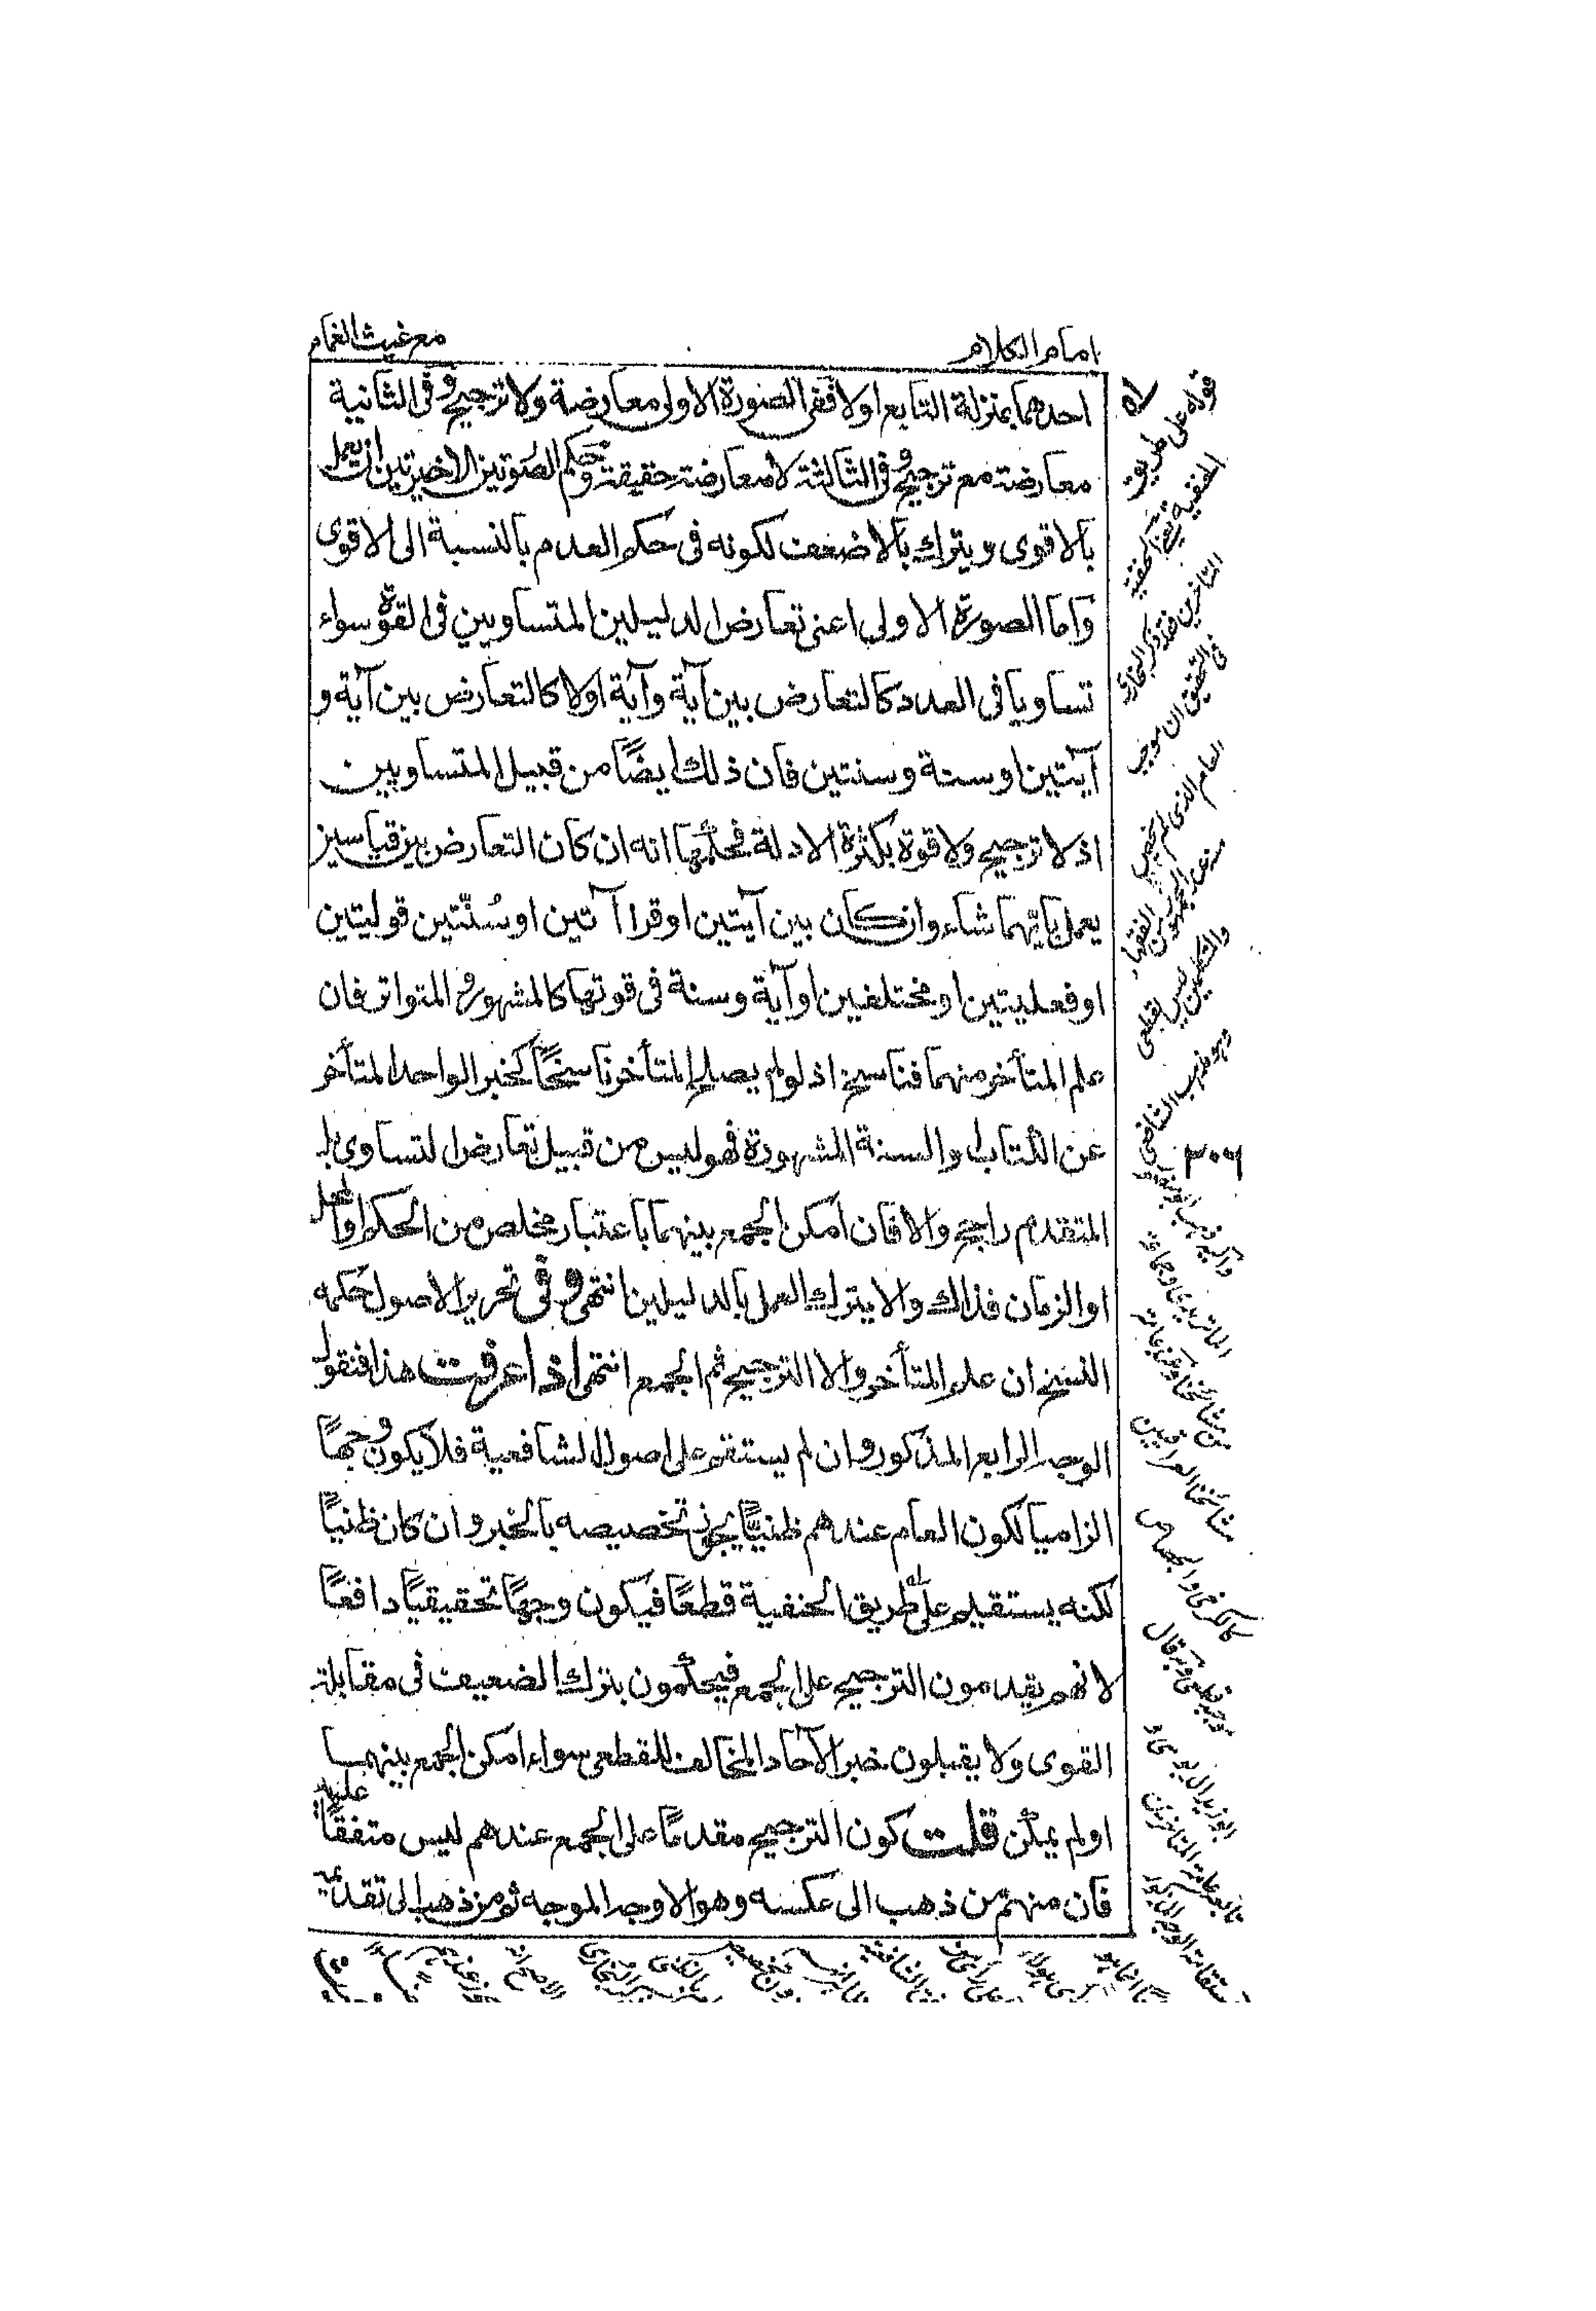 امام الكلام
مع غيث الغمام
احدهما بمنزلة التابع اولا ففى الصورة الاولى معارضة ولا ترجيح وفى الثانية
معارضة مع ترجيح وفى الثالثة لا معارضة حقيقة وحكم الصورتين الاخيرتين ان يعمل
بالاقوى ويترك بالاضعف لكونه فى حكم العدم بالنسبة الى الاقوى
واما الصورة الاولى اعنى تعارض الدليلين المتساويين فى القوة سواء
تساويا فى العدد كالتعارض بين آية وآية اولا كالتعارض بين آية و
آيتين او سنة وسنتين فان ذلك ايضًا من قبيل المتساويين
اذ لا ترجيح ولا قوة بكثرة الادلة فحكمها انه ان كان التعارض بين قياسين
يعمل بايهما شاء وان كان بين آيتين او قراآتين او سُنّتين قوليتين
او فعليتين او مختلفين او آية وسنة فى قوتها كالمشهور و المتواتر فان
علم المتأخر منهما فناسخ اذ لو لم يصلح المتأخر ناسخًا كخبر الواحد المتأخر
عن الكتاب والسنة المشهورة فهو ليس من قبيل تعارض التساوى بل
المتقدم راجح والا فان امكن الجمع بينهما باعتبار مخلص من الحكم او المحل
او الزمان فذاك والا يترك العمل بالدليلين انتهى وفى تحرير الاصول حكمه
النسخ ان علم المتأخر والا الترجيح ثم الجمع انتهى اذا عرفت هذا فنقول
الوجه الرابع المذكور وان لم يستقم على اصول الشافعية فلا يكون وجهًا
الزاميا لكون العام عندهم ظنيًّا يجوز تخصيصه بالخبر وان كان ظنيًّا
لكنه يستقيم على طريق الحنفية قطعًا فيكون وجهًا تحقيقيًا دافعًا
لانهم يقدمون الترجيح على الجمع فيحكمون بترك الضعيف فى مقابلة
القوى ولا يقبلون خبر الآحاد المخالف للقطعى سواء امكن الجمع بينهما
او لم يمكن قلت كون الترجيح مقدمًا على الجمع عندهم ليس متفقًا عليه
فان منهم من ذهب الى عكسه وهو الاوجه الموجه ثم من ذهب الى تقديم
قوله على طريق
الحنفية
المتأخرين فقد ذكر
فى التحقيق ان موجب
العام الذى لم يخص
عند الجمهور من الفقهاء
والمتكلمين ليس بقطعى
وهو مذهب الشافعى
واليه ذهب ابو منصور
الماتريدى وجماعة
من مشائخنا وعند عامة
مشائخنا العراقيين
كالكرخى والجصاص
ابو زيد الدبوسى و
٣٠٦